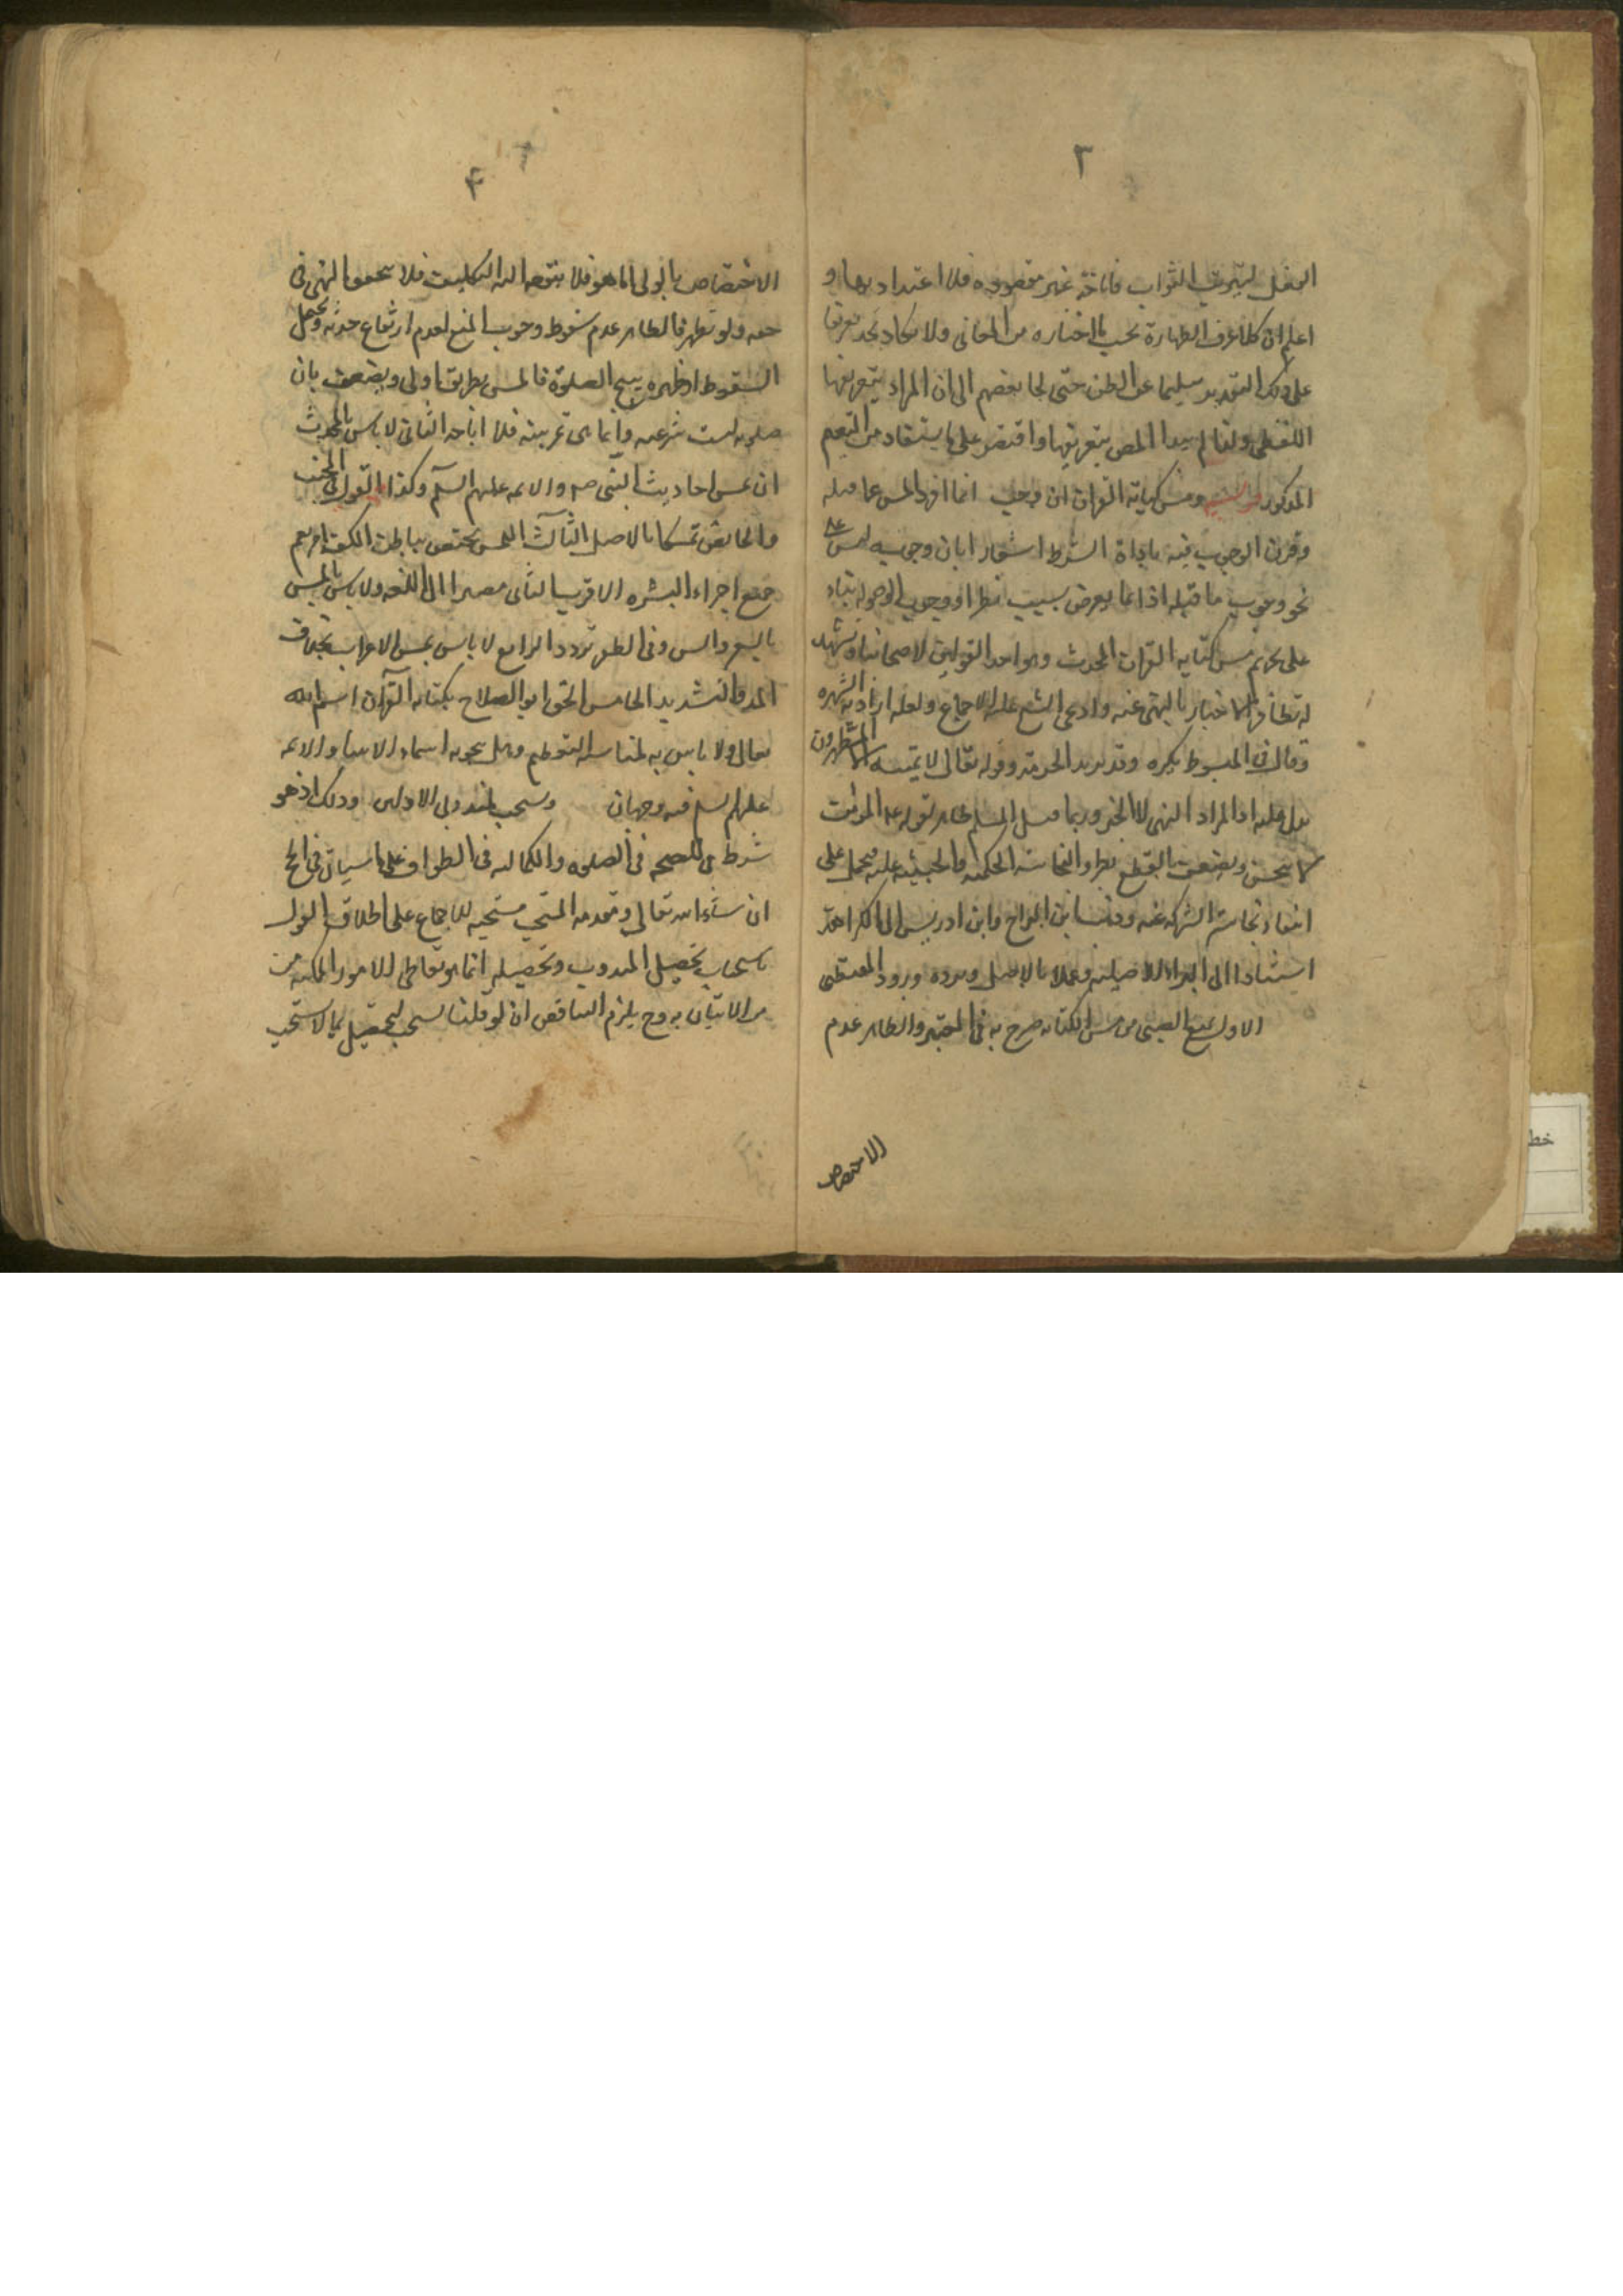 ٣
الفعل ليترتب الثواب فاباحته غير مقصوده فلا اعتداد بها و
اعلم ان كلا عرف الطهارة بحسب ما اختاره من المعانى ولا تكاد تجد تعريفا
على ذلك التقدير سليما عن الطعن حتى لجا بعضهم الى ان المراد بتعريفها
اللفظى ولهذا لم يبدا المص بتعريفها واقتصر على ما يستفاد من التقسيم
المذكور ومس كتابة القران ان وجب انما افرد المس عما قبله
وقرن الوجوب فيه باداة الشرط اشعارا بان وجوبه ليس على
نحو وجوب ما قبله اذ انما يعرض بسبب نذر او ووجوب الوضوء بناء
على تحريم مس كتابة القران للمحدث وهو احد القولين لاصحابنا ويشهد
له تظافر الاخبار بالنهى عنه وادعى الشيخ عليه الاجماع ولعله اراد به الشهره
وقال فى المبسوط يكره وقد يريد الحرمة وقوله تعالى لا يمسه الا المطهرون
يدل عليه اذ المراد النهى لا الخبر وربما قيل المسلم طاهر لقوله عليه المؤمن
لا ينجس ويضعف بالقطع بطرو النجاسة الحكمية والخبيثة عليه فيحمل على
انتفاء نجاسة الشرك عنه وذهب ابن البراج وابن ادريس الى الكراهة
استنادا الى البراءة الاصلية وعملا بالاصل ويرده ورود المقتضى
الاول يمنع الصبى من مس الكتابه صرح به فى المعتبر والظاهر عدم
الاختصاص
۴
الاختصاص بالولى اما هو فلا يتوجه اليه التكليف فلا يتحقق النهى فى
حقه ولو تطهر فالظاهر عدم سقوط وجوب المنع لعدم ارتفاع حدثه ويحتمل
السقوط اذ طهره يبيح الصلوة فالمس بطريق اولى ويضعف بان
صلوته ليست شرعيه وانما هى تمرينيه فلا اباحه الثانى لا باس للمحدث
ان يمس احاديث النبى ص والائمه عليهم السلم وكذا القول فى الجنب
والحائض تمسكا بالاصل الثالث اللمس يختص بباطن الكف ام يعم
جميع اجزاء البشره الاقرب الثانى مصيرا الى اللغه ولا باس بالمس
بالشعر والسن وفى الظفر تردد الرابع لا باس بمس الاعراب بخلاف
المد والتشديد الخامس الحق ابو الصلاح بكتابه القرآن اسم الله
تعالى ولا باس به لمناسبه التعظيم وهل يجوز اسماء الانبيا والائمه
عليهم السلم فيه وجهان ويستحب لمندوبى الاولين وذلك اذ هو
شرط فى الصحه فى الصلوه والكماليه فى الطواف على ما سياتى فى الحج
ان شاء الله تعالى ومقدمه المستحب مستحبه للاجماع على اطلاق القول
باستحباب تحصيل المندوب وتحصيله انما هو بتعاطى الامور الممكنه من
من الاتيان به وح يلزم التناقض ان لو قلنا يستحب تحصيل ما لا يستحب